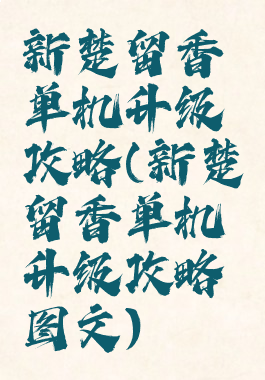 新楚留香
单机升级
攻略(新楚
留香单机
升级攻略
图文)